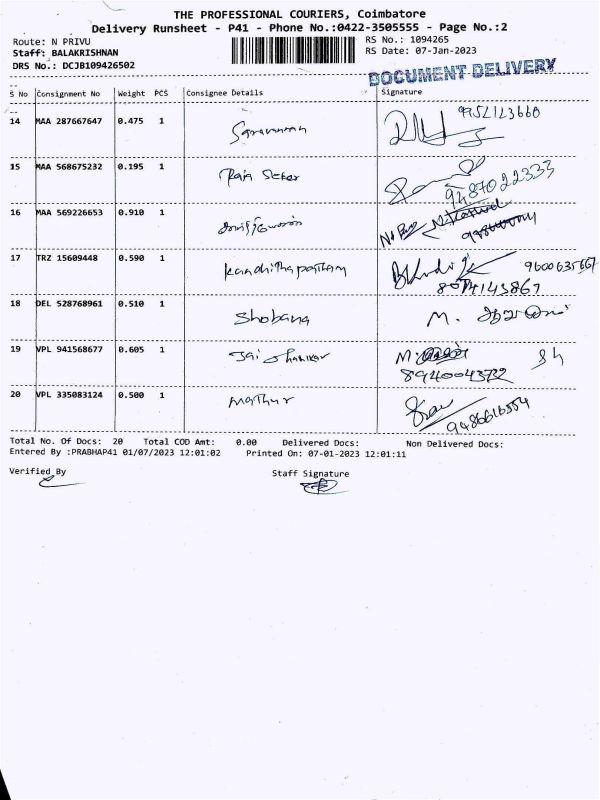 THE PROFESSIONAL COURIERS, Coimbatore
Delivery Runsheet - P41 - Phone No.:0422-3505555 - Page No.:2
Route: N PRIVU
RS No.: 1094265
Staff: BALAKRISHNAN
RS Date: 07-Jan-2023
DRS No.: DCJB109426502
DOCUMENT DELIVERY
S No Consignment No Weight PCS Consignee Details Signature
14 MAA 287667647 0.475 1 Saravanan 9952123660
15 MAA 568675232 0.195 1 Raja Seker 9487022333
16 MAA 569226653 0.910 1
17 TRZ 15609448 0.590 1 9600635667
8074143867
18 DEL 528768961 0.510 1 Shobana M.
19 VPL 941568677 0.605 1 Jai Shankar M.
8940043732
20 VPL 335083124 0.500 1 Mathur
9486616554
Total No. Of Docs: 20 Total COD Amt: 0.00 Delivered Docs: Non Delivered Docs:
Entered By :PRABHAP41 01/07/2023 12:01:02 Printed On: 07-01-2023 12:01:11
Verified By Staff Signature